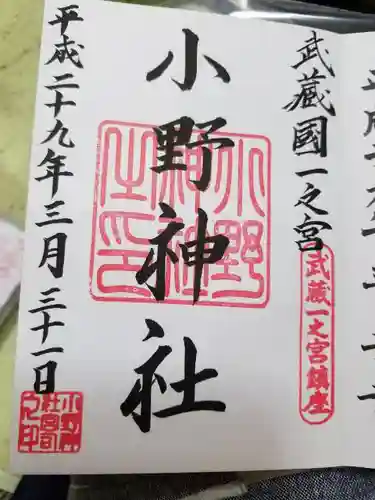 武蔵國一之宮
武蔵一之宮鎮座
小野神社
小野神社之印
平成二十九年三月三十一日
小野神社宮司之印